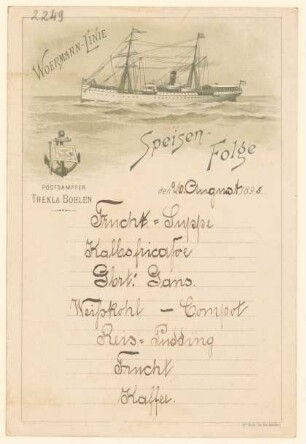 2249
WOERMANN-LINIE
Speisen-
Folge
POSTDAMPFER
THEKLA BOHLEN
den 26 August 1898.
Frucht = Suppe
Kalbsfricasse
Gbrt: Gans.
Weißkohl — Compot
Reis = Pudding
Frucht
Kaffee.